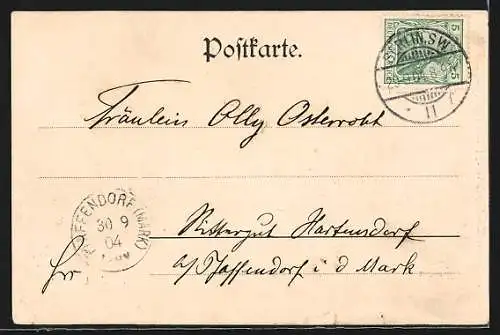 Postkarte.
5 5
BERLIN.SW
11
Fräulein Olly Osterroht
PFAFFENDORF (MARK)
30 9
04
Rittergut Hartensdorf
b/Pfaffendorf i d Mark